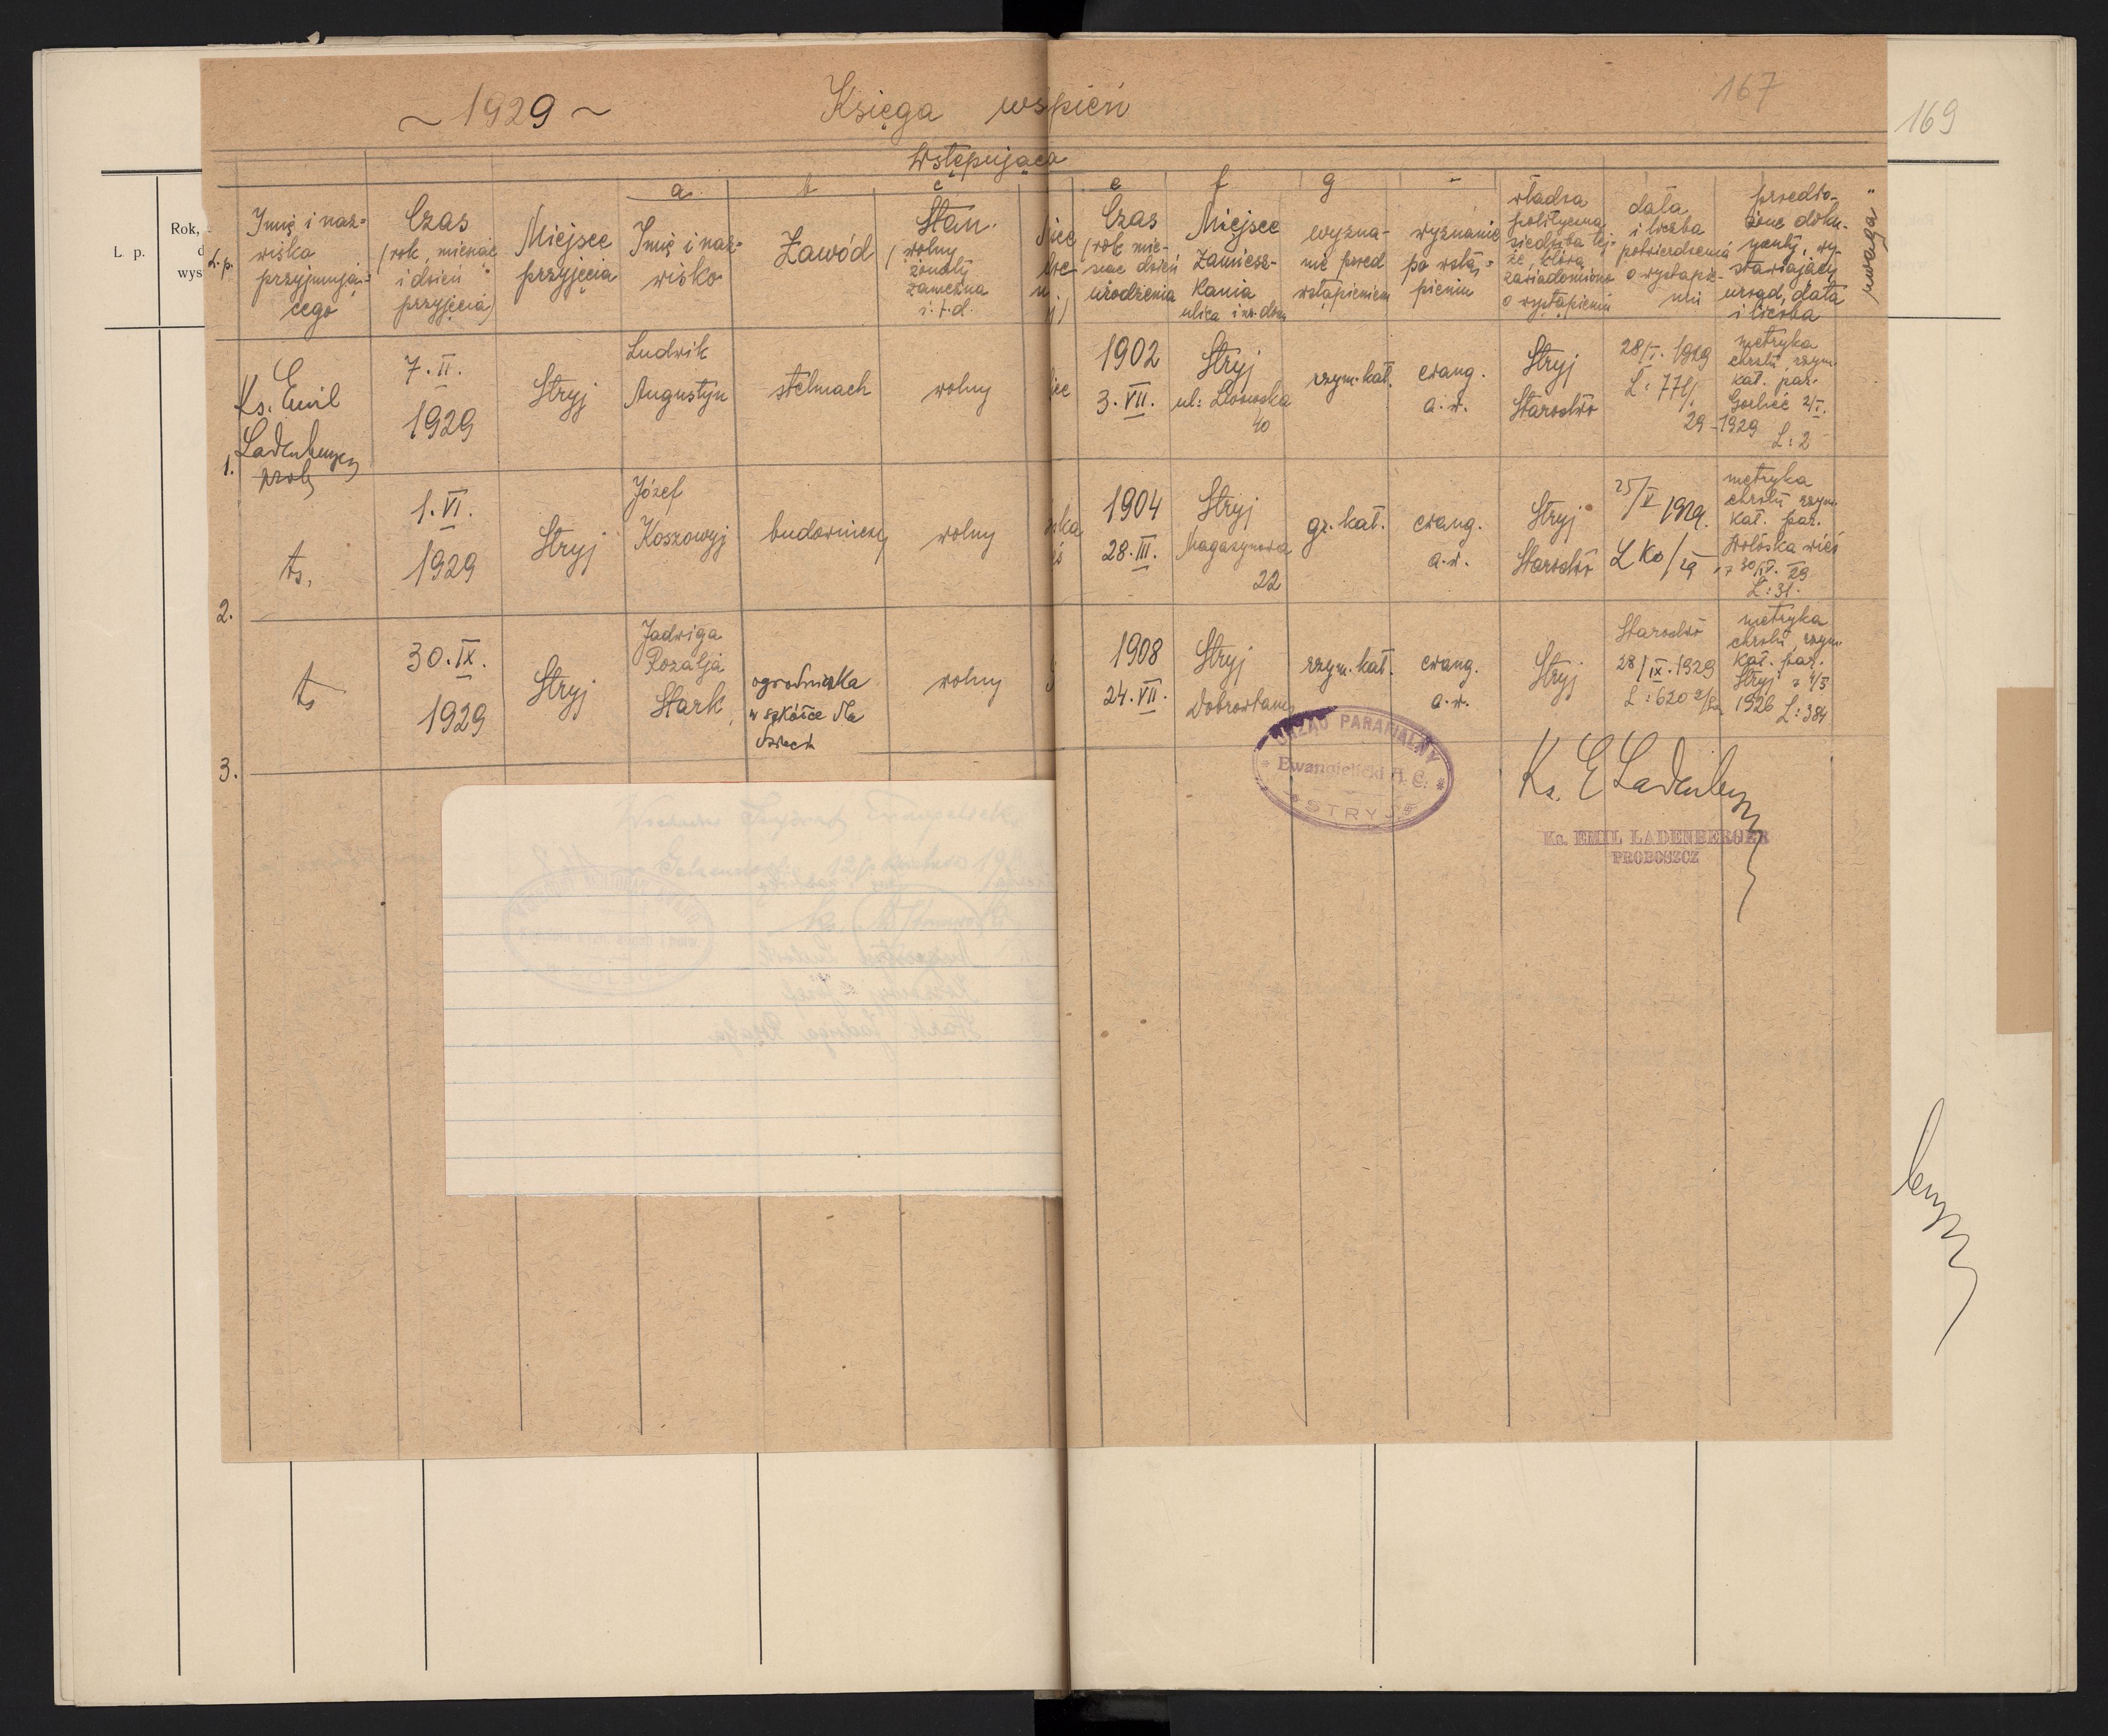 ~ 1929 ~ Księga wspień
167
169
Wstępująca
a b c e f g
L. p.
Rok,
wys
L.p.
Imię i naz=
wiska
przyjmują=
cego
Czas
(rok, miesiąc
i dzień
przyjęcia)
Miejsce
przyjęcia
Imię i naz=
wisko
Zawód
Stan.
(wolny
żonaty
zamężna
i.t.d.
Czas
(rok mie-
siąc dzień
urodzenia
Miejsce
zamiesz-
kania
ulica i nr. domu
wyzna-
nie przed
wstąpieniem
wyznanie
po wstą=
pieniu
władza
polityczna
siedziba tej-
że, którą
zawiadomiono
o wystąpieniu
data
i liczba
potwierdzenia
o wystąpie-
niu
przedło-
żone doku-
menty, wy-
stawiający
urząd, data
i liczba
"uwaga"
1.
Ks. Emil
Ladenberger
prob
7. II.
1929
Stryj
Ludwik
Augustyn
stelmach
wolny
1902
3. VII.
Stryj
ul: Lwowska
40
rzym. kat.
ewang.
a. w.
Stryj
Starostwo
28/I. 1929
L: 771/
29
metryka
chrztu, rzym.
kat. par.
Gorlice 2/I.
1929 L: 2
2.
ts.
1. VI.
1929
Stryj
Józef
Koszowyj
budowniczy
wolny
1904
28. III.
Stryj
Magazynowa
22
gr. kat.
ewang.
a. w.
Stryj
Starostwo
25/V 1929.
L Ko/29
metryka
chrztu rzym.
kat. par.
Wołoska wieś
z 30/IV. 29
L: 31.
3.
ts
30. IX.
1929
Stryj
Jadwiga
Rozalja
Stark
ogrodniczka
w szkółce dla
dzieci
wolny
1908
24. VII.
Stryj
Dobrowlany
rzym. kat.
ewang.
a. w.
Stryj
Starostwo
28/IX. 1929
metryka
chrztu, rzym.
kat. par.
Stryj
1926 L: 384
URZĄD PARAFIALNY
Ewangielicki A. C.
STRYJ
Ks. E Ladenberger
Ks. EMIL LADENBERGER
PROBOSZCZ